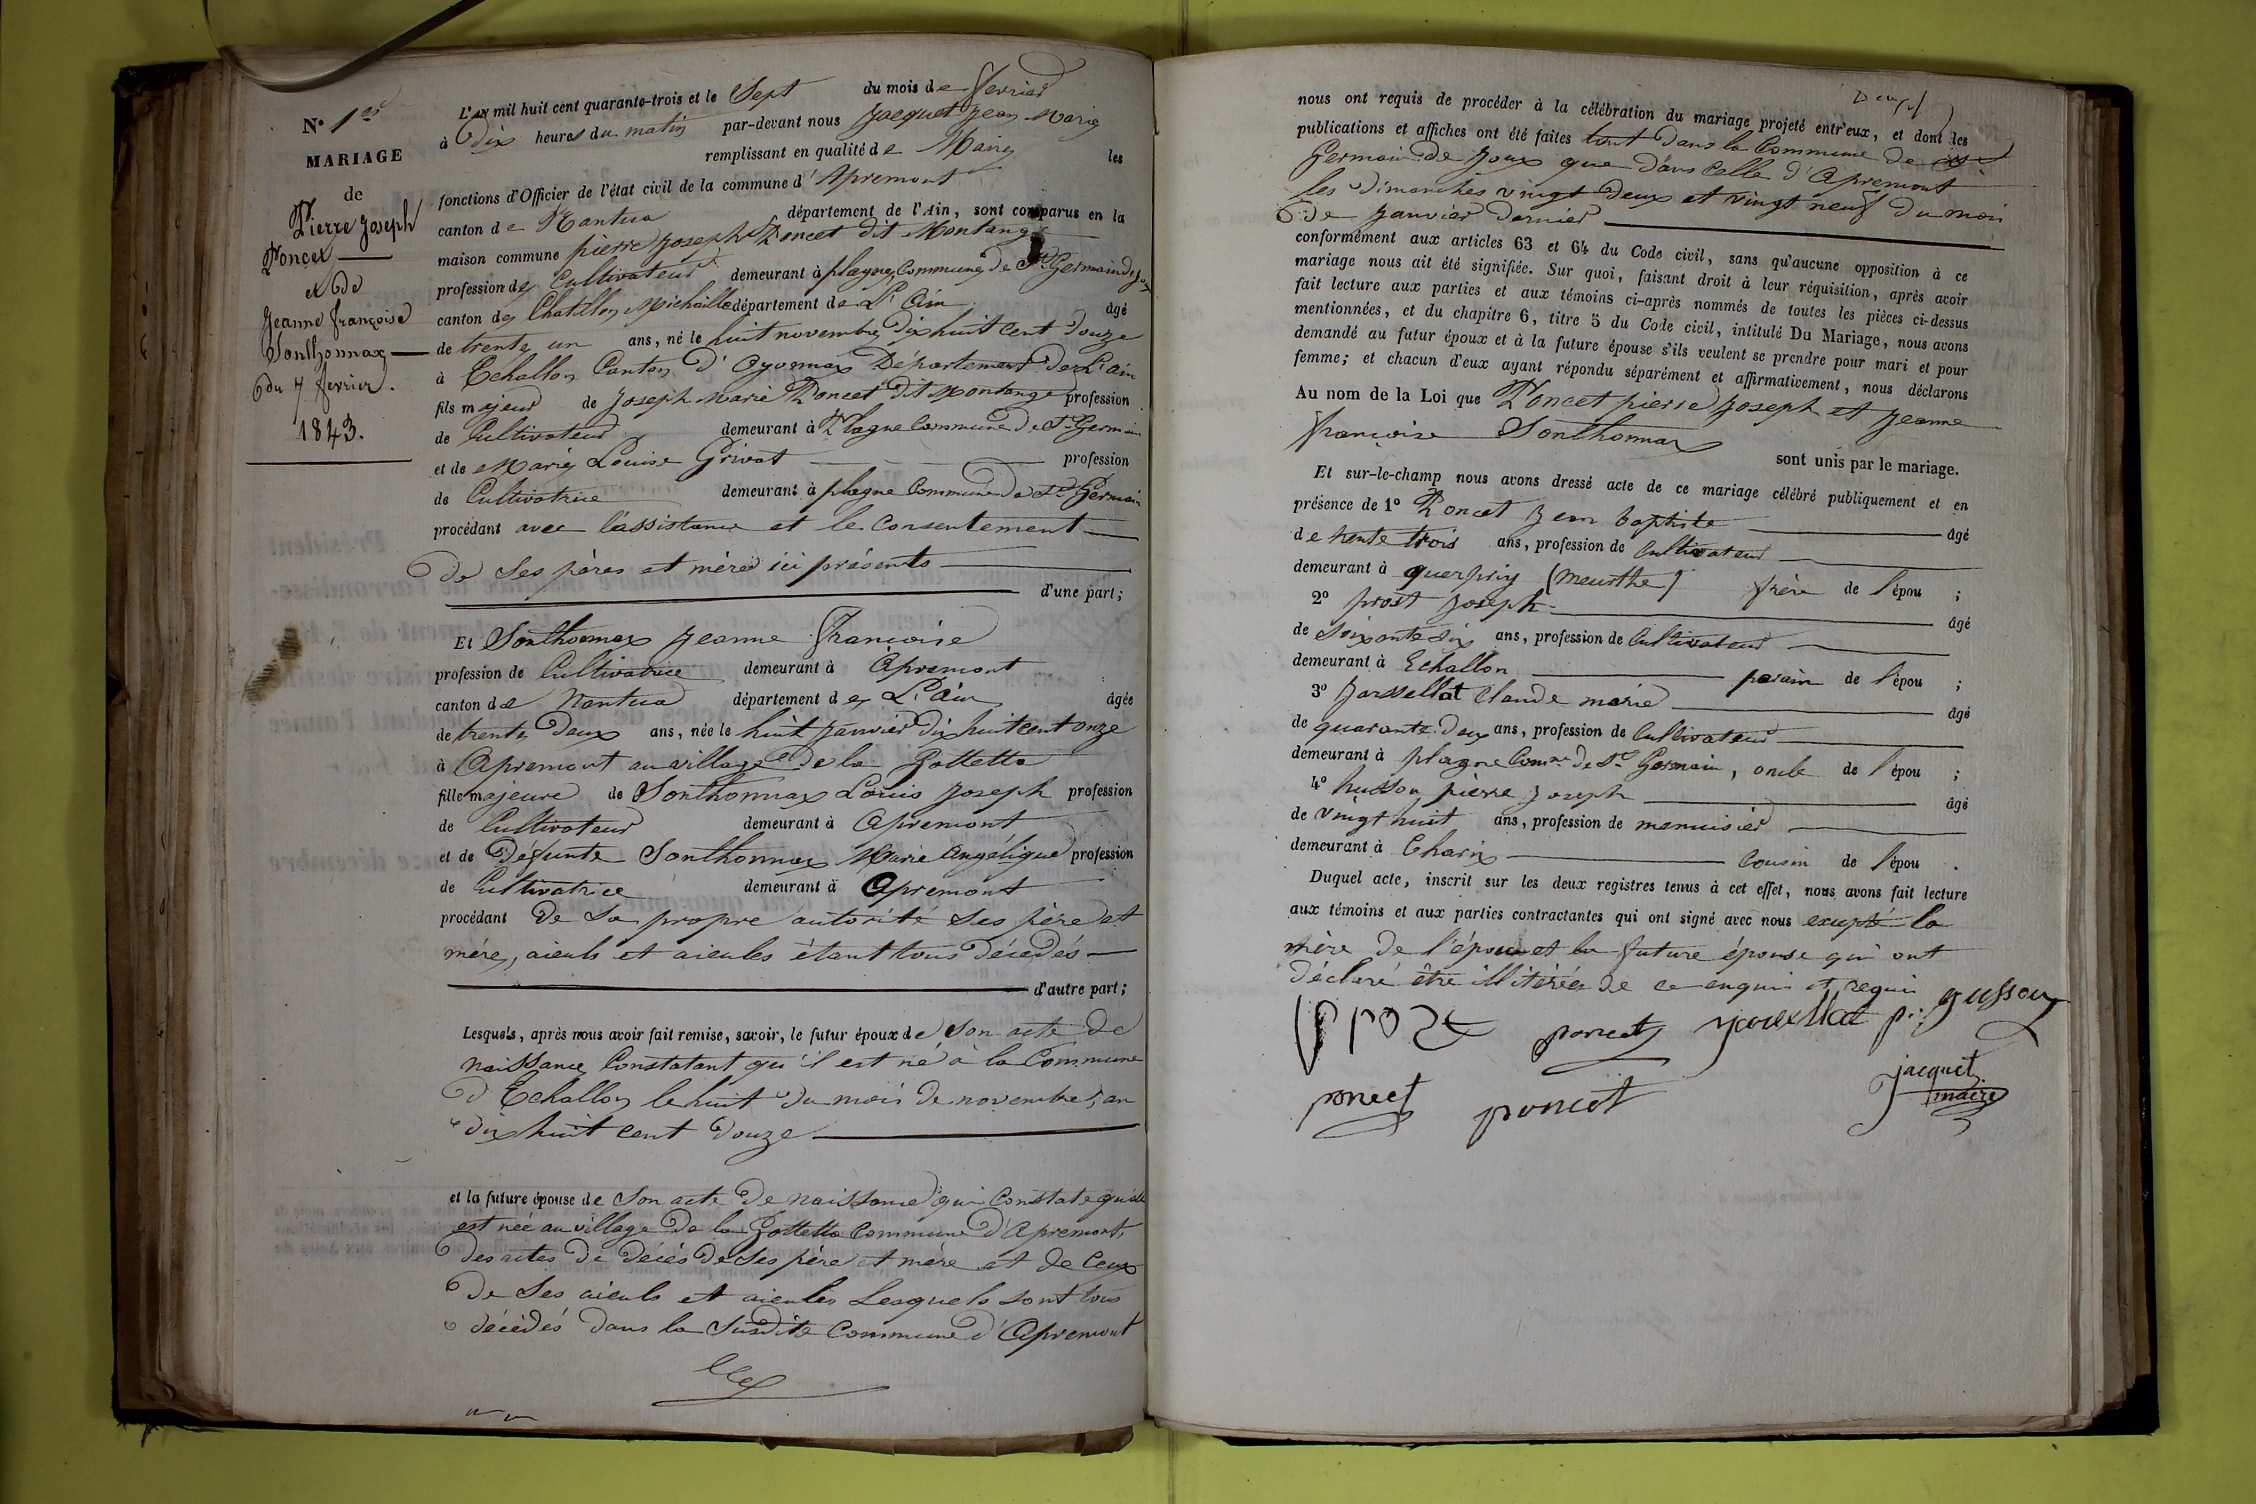 N° 1er
MARIAGE
de
Pierre Joseph
Poncet
et de
Jeanne françoise
Sonthonnax
du 7 fevrier.
1843.
L'an mil huit cent quarante-trois et le Sept du mois de fevrier
à Dix heures du matin par-devant nous Jacquet Jean Marie
remplissant en qualité de Maire les
fonctions d'Officier de l'état civil de la commune d'Apremont
canton de Nantua département de l'Ain, sont comparus en la
maison commune pierre Joseph Poncet dit Montange
profession de Cultivateur demeurant à plagne, Commune de St Germain de Joux
canton de Chatillon Michaille département de L'Ain âgé
de trente un ans, né le huit novembre dix huit cent Douze
à Echallon Canton d'Oyonnax Département de L'ain
fils majeur de Joseph Marie Poncet dit Montange profession
de Cultivateur demeurant à Plagne Commune de St Germain
et de Marie Louise Grivat profession
de Cultivatrice demeurant à plagne Commune de St Germain
procédant avec l'assistance et le consentement
de ses pères et mères ici présents
d'une part;
Et Sonthonnax Jeanne Françoise
profession de Cultivatrice demeurant à Apremont
canton de Nantua département de L'Ain âgée
de trente Deux ans, née le huit Janvier Dix huit cent onze
à Apremont au village de la Gottetta
fille majeure de Sonthonnax Louis Joseph profession
de Cultivateur demeurant à Apremont
et de Défunte Sonthonnax Marie Angélique profession
de Cultivatrice demeurant à Apremont
procédant De sa propre autorité ses père et
mère, aieuls et aieules étant tous décédés
d'autre part;
Lesquels, après nous avoir fait remise, savoir, le futur époux de son acte de
naissance Constatant qu'il est né à la Commune
d'Echallon le huit du mois de novembre, an
dix huit cent douze
et la future épouse de son acte de naissance qui Constate qu'elle
est née au village de la Gottetta Commune d'Apremont,
des actes de décès de ses père et mère et de ceux
de ses aieuls et aieules lesquels sont tous
décédés dans la susdite Commune d'Apremont
nous ont requis de procéder à la célébration du mariage projeté entr'eux, et dont les
publications et affiches ont été faites tant dans la Commune de St
Germain de Joux que dans celle d'Apremont
les dimanches vingt deux et vingt neuf du mois
de Janvier dernier
conformément aux articles 63 et 64 du Code civil, sans qu'aucune opposition à ce
mariage nous ait été signifiée. Sur quoi, faisant droit à leur réquisition, après avoir
fait lecture aux parties et aux témoins ci-après nommés de toutes les pièces ci-dessus
mentionnées, et du chapitre 6, titre 5 du Code civil, intitulé Du Mariage, nous avons
demandé au futur époux et à la future épouse s'ils veulent se prendre pour mari et pour
femme; et chacun d'eux ayant répondu séparément et affirmativement, nous déclarons
Au nom de la Loi que Poncet pierre Joseph et Jeanne
françoise Sonthonnax
sont unis par le mariage.
Et sur-le-champ nous avons dressé acte de ce mariage célébré publiquement et en
présence de 1° Poncet Jean baptiste âgé
de trente trois ans, profession de Cultivateur
demeurant à (Meurthe) frère de l'épou ;
2° prost Joseph âgé
de soixante six ans, profession de Cultivateur
demeurant à Echallon parain de l'épou ;
3° Claude marie âgé
de quarante deux ans, profession de Cultivateur
demeurant à plagne Comne de St Germain, oncle de l'épou ;
4° husson pierre Joseph âgé
de vingt huit ans, profession de menuisier
demeurant à Charix Cousin de l'épou .
Duquel acte, inscrit sur les deux registres tenus à cet effet, nous avons fait lecture
aux témoins et aux parties contractantes qui ont signé avec nous excepté la
mère de l'époux et la future épouse qui ont
déclaré être illitérées de ce enquis et requis
prost poncet p. j. gusson
jacquet
maire
poncet poncet